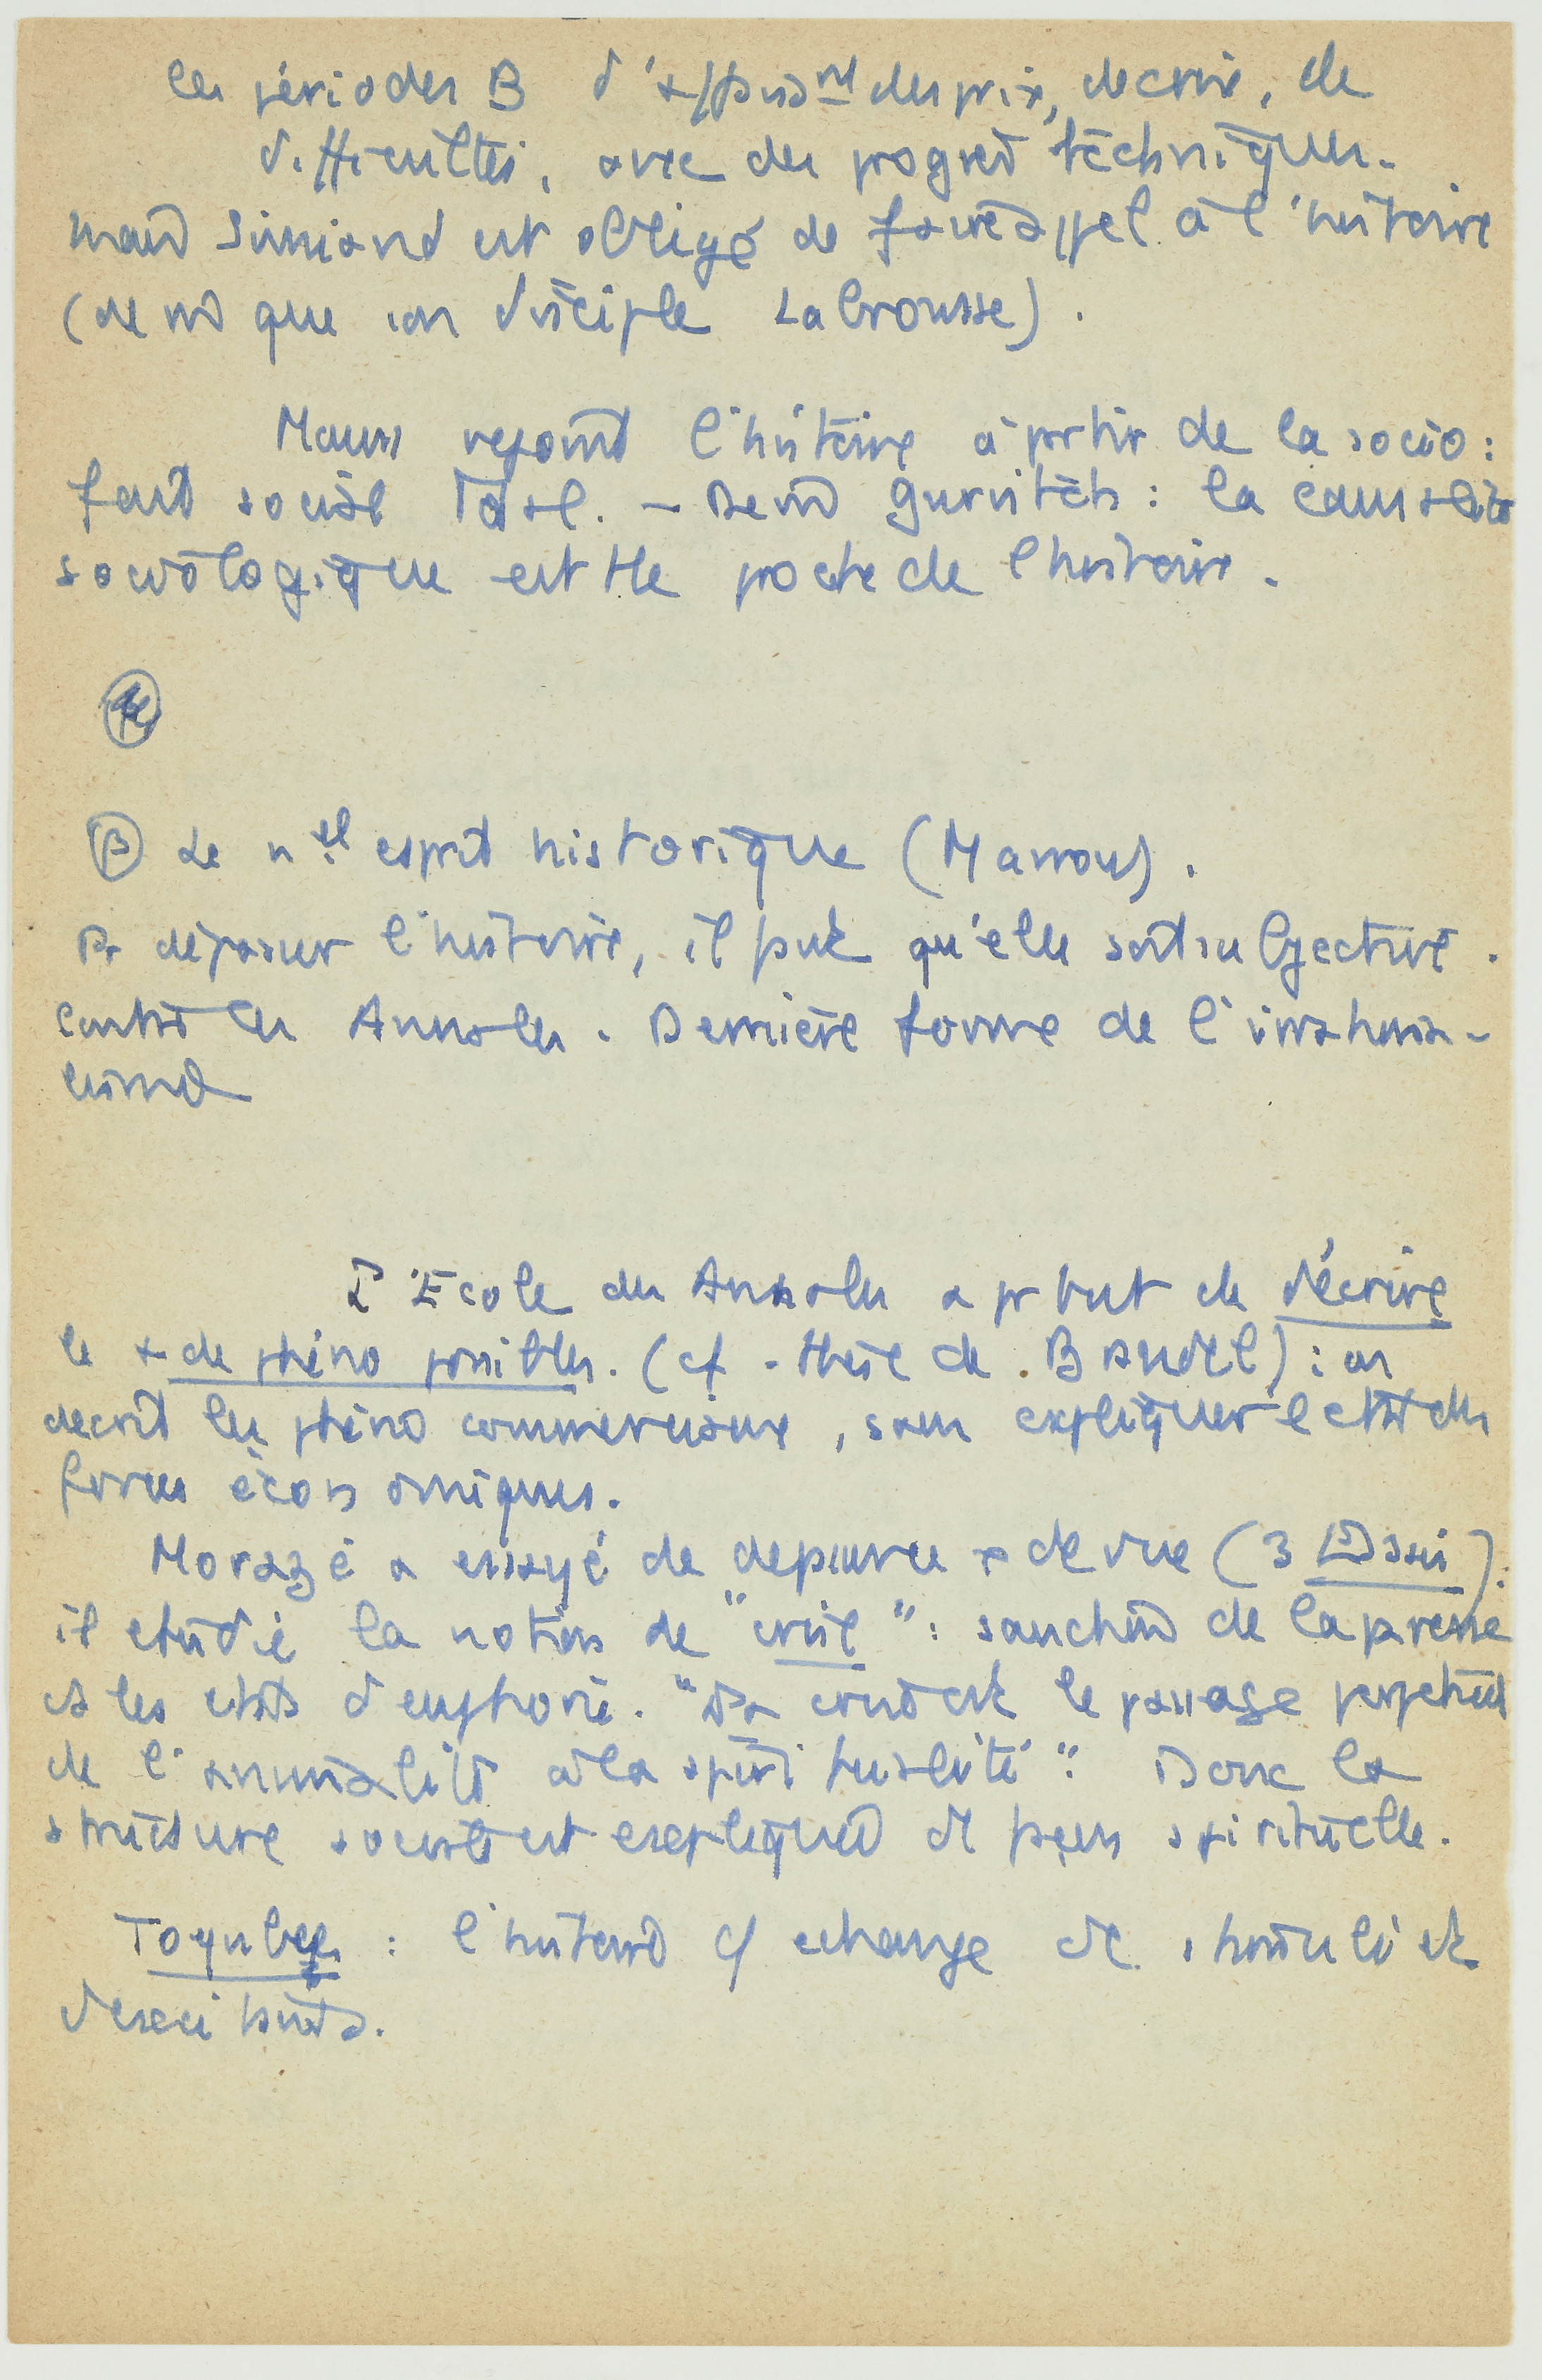 les périodes B d'affaisst des prix, de crise, de
difficultés, avec des progrès techniques.
mais Simiand est obligé de faire appel à l'histoire
(de m que son disciple Labrousse).
Mauss rejoint l'histoire à partir de la socio :
fait social total. – De m Gurvitch : la causalité
sociologique est tte proche de l'histoire.
(B) Le nel esprit historique (Marrou).
Pr dépasser l'histoire, il faut qu'elle soit subjective.
Contre les Annales. Dernière forme de l'irrationa-
lisme
L'Ecole des Annales a pr but de décrire
le + de phéno possibles. (cf. thèse de Braudel) : on
décrit les phéno commerciaux, sans expliquer l'état des
forces économiques.
Morazé a essayé de ce pt de vue (3 Essais) :
il étudie la notion de "crise" :
et les états d'euphorie. " le passage perpétuel
de l'animalité à la spiritualité". Donc la
structure sociale est expliquée de façon spirituelle.
Toynbee : l'histoire c/ échange de stimuli et
d'excitants.